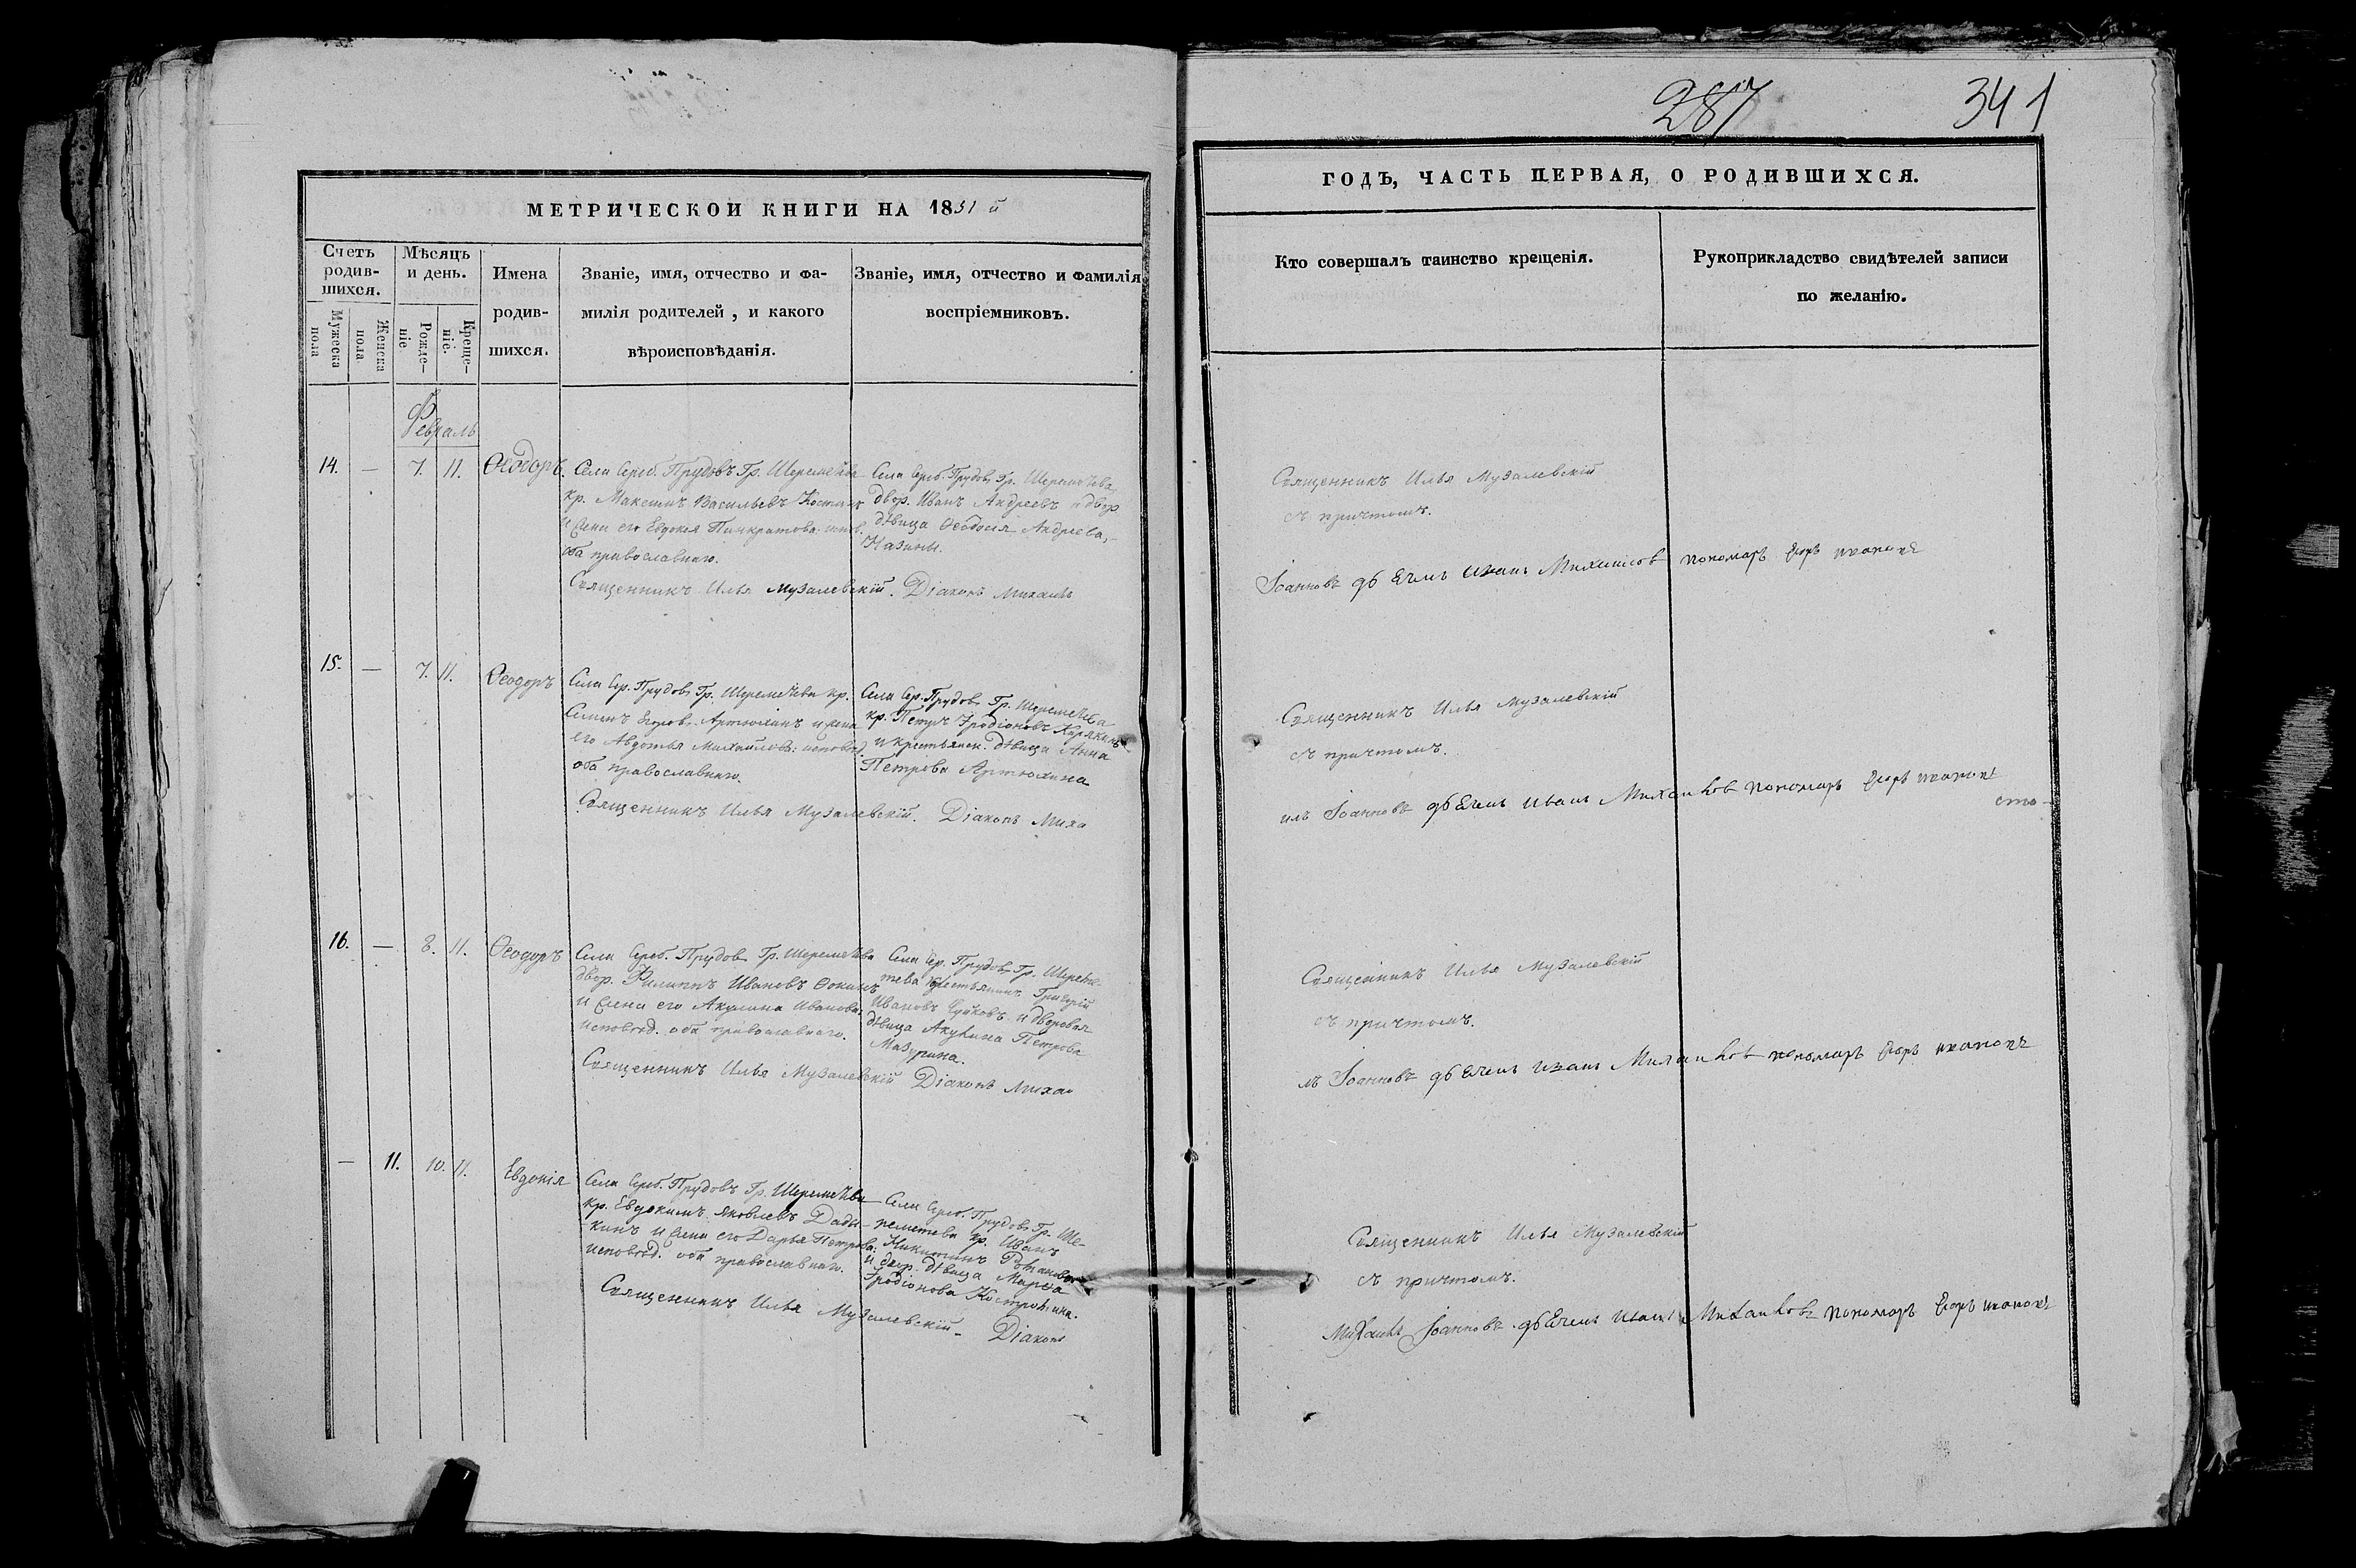 МЕТРИЧЕСКОЙ КНИГИ НА 1851 й
Счетъ родив-шихся.
Мужеска пола
Женска пола
Мѣсяцъ и день.
Рожде-ніе
Креще-ніе.
Имена
родив-
шихся.
Званіе, имя, отчество и фа-
милія родителей, и какого
вѣроисповѣданія.
Званіе, имя, отчество и фамилія
воспріемниковъ.
Февраль
14. — 7. 11. Ѳеодоръ.
Села Сереб. Прудовъ Гр. Шереметева
кр. Максимъ Васильевъ
и жена его Евдокія Панкратова: испов.
оба православнаго.
Села Сереб. Прудовъ Гр. Шереметева
двор. Иванъ Андреевъ и двор.
дѣвица Ѳеодосія Андреева,
Назины.
Священникъ Илья Музалевскій. Діаконъ Михаилъ
15. — 7. 11. Ѳеодоръ
Села Сер. Прудовъ Гр. Шереметева кр.
Семенъ Егоровъ Артюхинъ и жена
его Авдотья Михайлова: исповѣд.
оба православнаго.
Села Сер. Прудовъ Гр. Шереметева
кр. Петръ Иродіоновъ Карякинъ
и крестьянск. дѣвица Анна
Петрова Артюхина
Священникъ Илья Музалевскій. Діаконъ Миха
16. — 8. 11. Ѳеодоръ
Села Сереб. Прудовъ Гр. Шереметева
двор. Филиппъ Ивановъ Ѳокинъ
и жена его Акулина Иванова:
исповѣд. оба православнаго.
Села Сер. Прудовъ Гр. Шереме-
тева крестьянинъ Григорій
Ивановъ Чуйковъ и дворовая
дѣвица Акулина Петрова
Мазурина.
Священникъ Илья Музалевскій Діаконъ Михаи
— 11. 10. 11. Евдокія
Села Сереб. Прудовъ Гр. Шереметева
кр. Евдокимъ Яковлевъ Дады-
кинъ и жена его Дарья Петрова:
исповѣд. оба православнаго.
Села Сереб. Прудовъ Гр. Ше-
реметева кр. Иванъ
Никитинъ
и двор. дѣвица Марѳа
Иродіонова
Священникъ Илья Музалевскій – Діаконъ
287 341
ГОДЪ, ЧАСТЬ ПЕРВАЯ, О РОДИВШИХСЯ.
Кто совершалъ таинство крещенія.
Рукоприкладство свидѣтелей записи
по желанію.
Священникъ Илья Музалевскій
съ причтомъ.
Іоанновъ дьячекъ Иванъ Михайловъ пономарь Егоръ
Священникъ Илья Музалевскій
съ причтомъ.
илъ Іоанновъ дьячекъ Иванъ Михайловъ пономарь Егоръ
Священникъ Илья Музалевскій
съ причтомъ.
лъ Іоанновъ дьячекъ Иванъ Михайловъ пономарь Егоръ
Священникъ Илья Музалевскій
съ причтомъ.
Михаилъ Іоанновъ дьячекъ Иванъ Михайловъ пономарь Егоръ